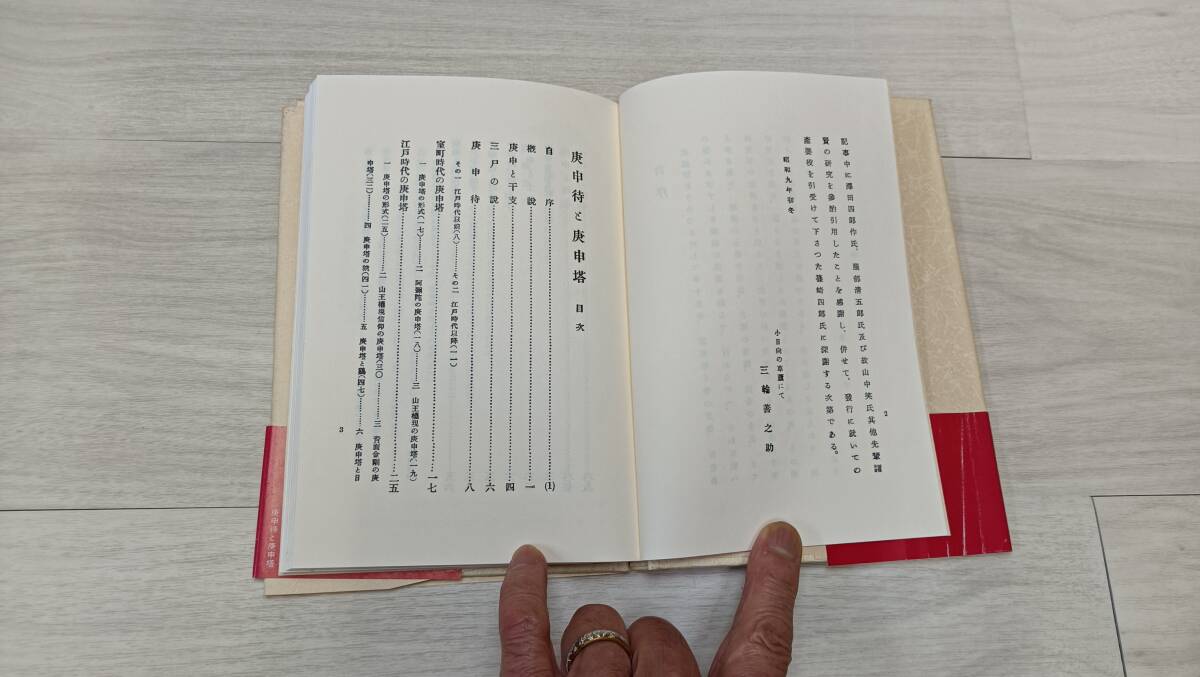 記事中に澤田四郎作氏、服部清五郎氏及び故山中笑氏其他先輩諸
賢の研究を參酌引用したことを感謝し、併せて、發行に就いての
齋要校を引受けて下さつた篠崎四郎氏に深謝する次第である。
昭和九年初冬
小日向の草廬にて
三輪善之助
2
庚申待と庚申塔 目次
自序……(1)
概説……一
庚申と干支……四
三尸の說……六
庚申待……八
その一 江戸時代以前(八)……その二 江戸時代以降(一一)
室町時代の庚申塔……一七
一 庚申塔の形式(一七)……二 阿彌陀の庚申塔(一八)……三 山王權現の庚申塔(一九)
江戸時代の庚申塔……二五
一 庚申塔の形式(二五)……二 山王權現信仰の庚申塔(三〇)……三 靑面金剛の庚
申塔(三二)……四 庚申塔の猿(四二)……五 庚申塔と鷄(四七)……六 庚申塔と日
3
庚申待と庚申塔